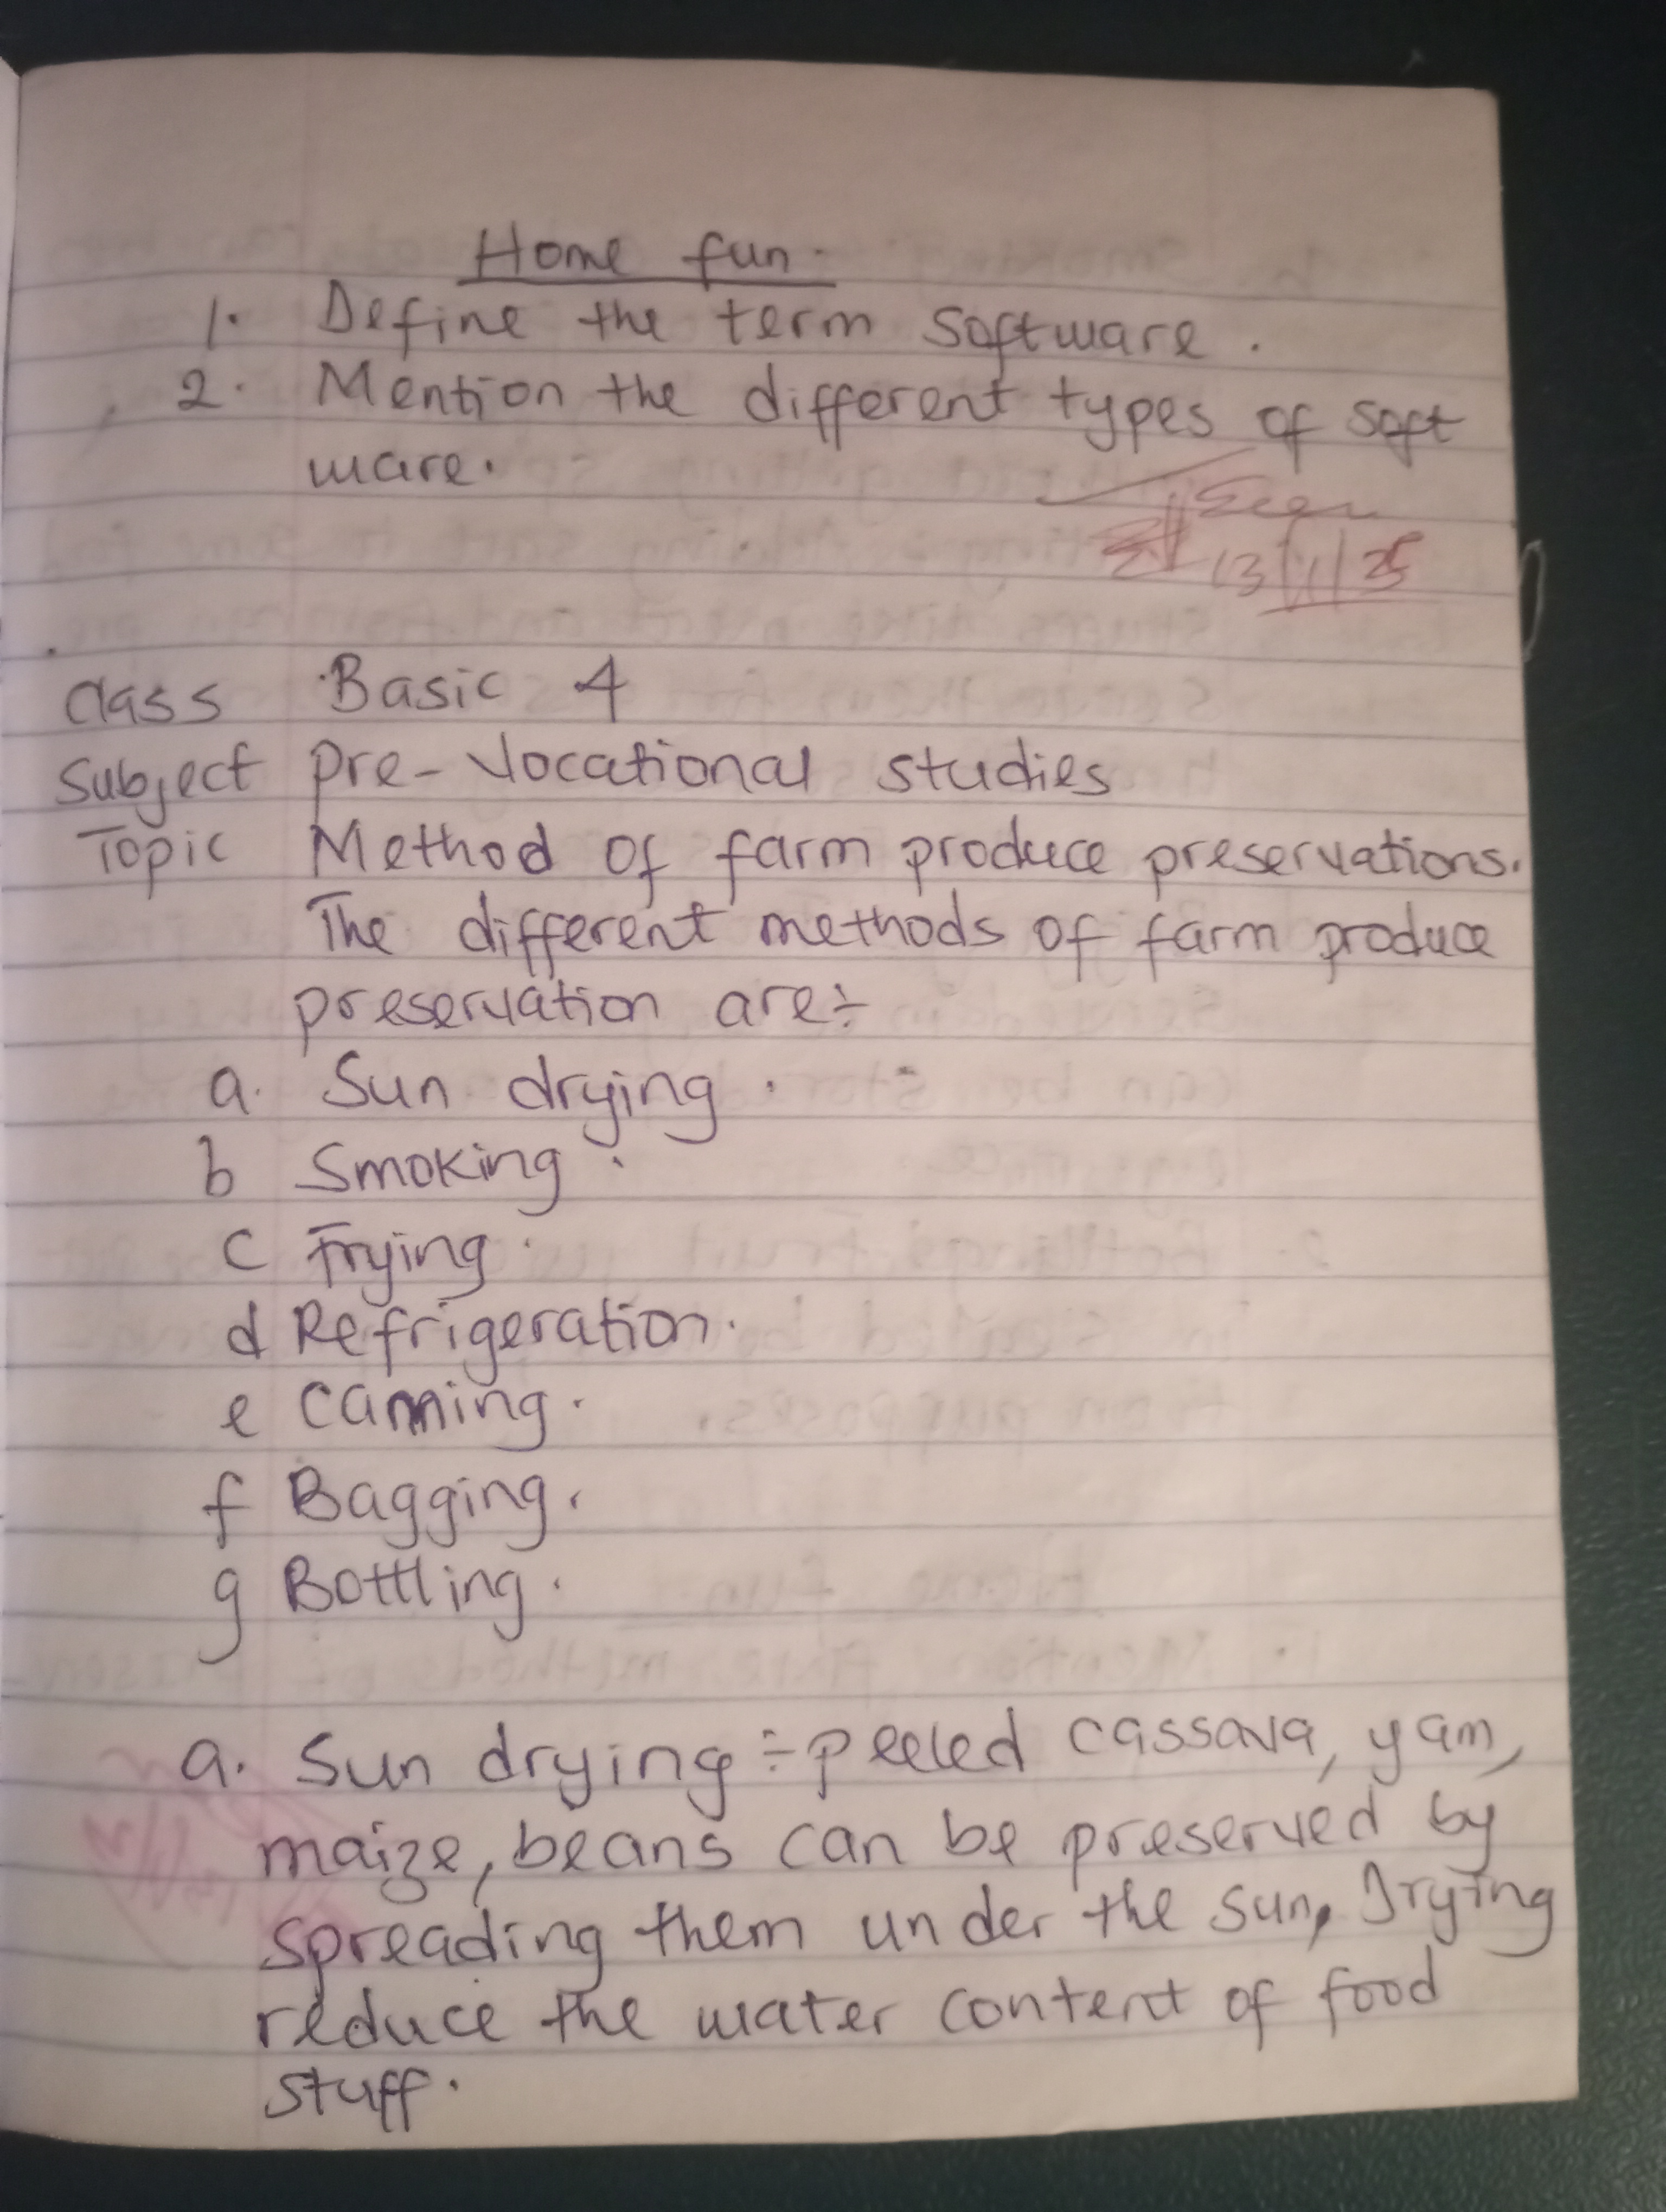 Home fun.
1. Define the term software.
2. Mention the different types of soft
ware.
Seen
13/1/25
Class Basic 4
Subject Pre-Vocational studies
Topic Method of farm produce preservations.
The different methods of farm produce
preservation are:-
a. Sun drying.
b Smoking.
c Frying.
d Refrigeration.
e Canning.
f Bagging.
g Bottling.
a. Sun drying:- peeled cassava, yam,
maize, beans can be preserved by
spreading them under the sun, Drying
reduce the water content of food
stuff.